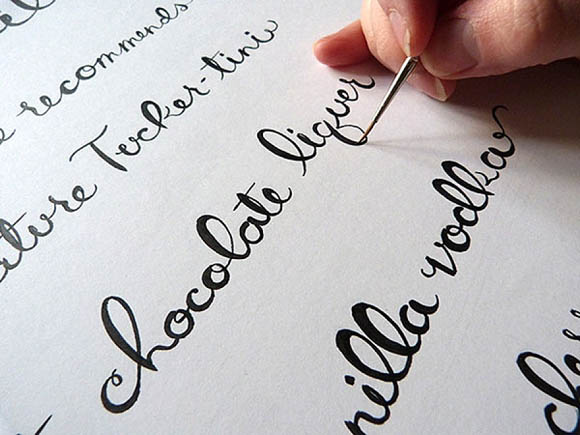 recommends
ature Tucker-tini
chocolate liquer
nilla vodka